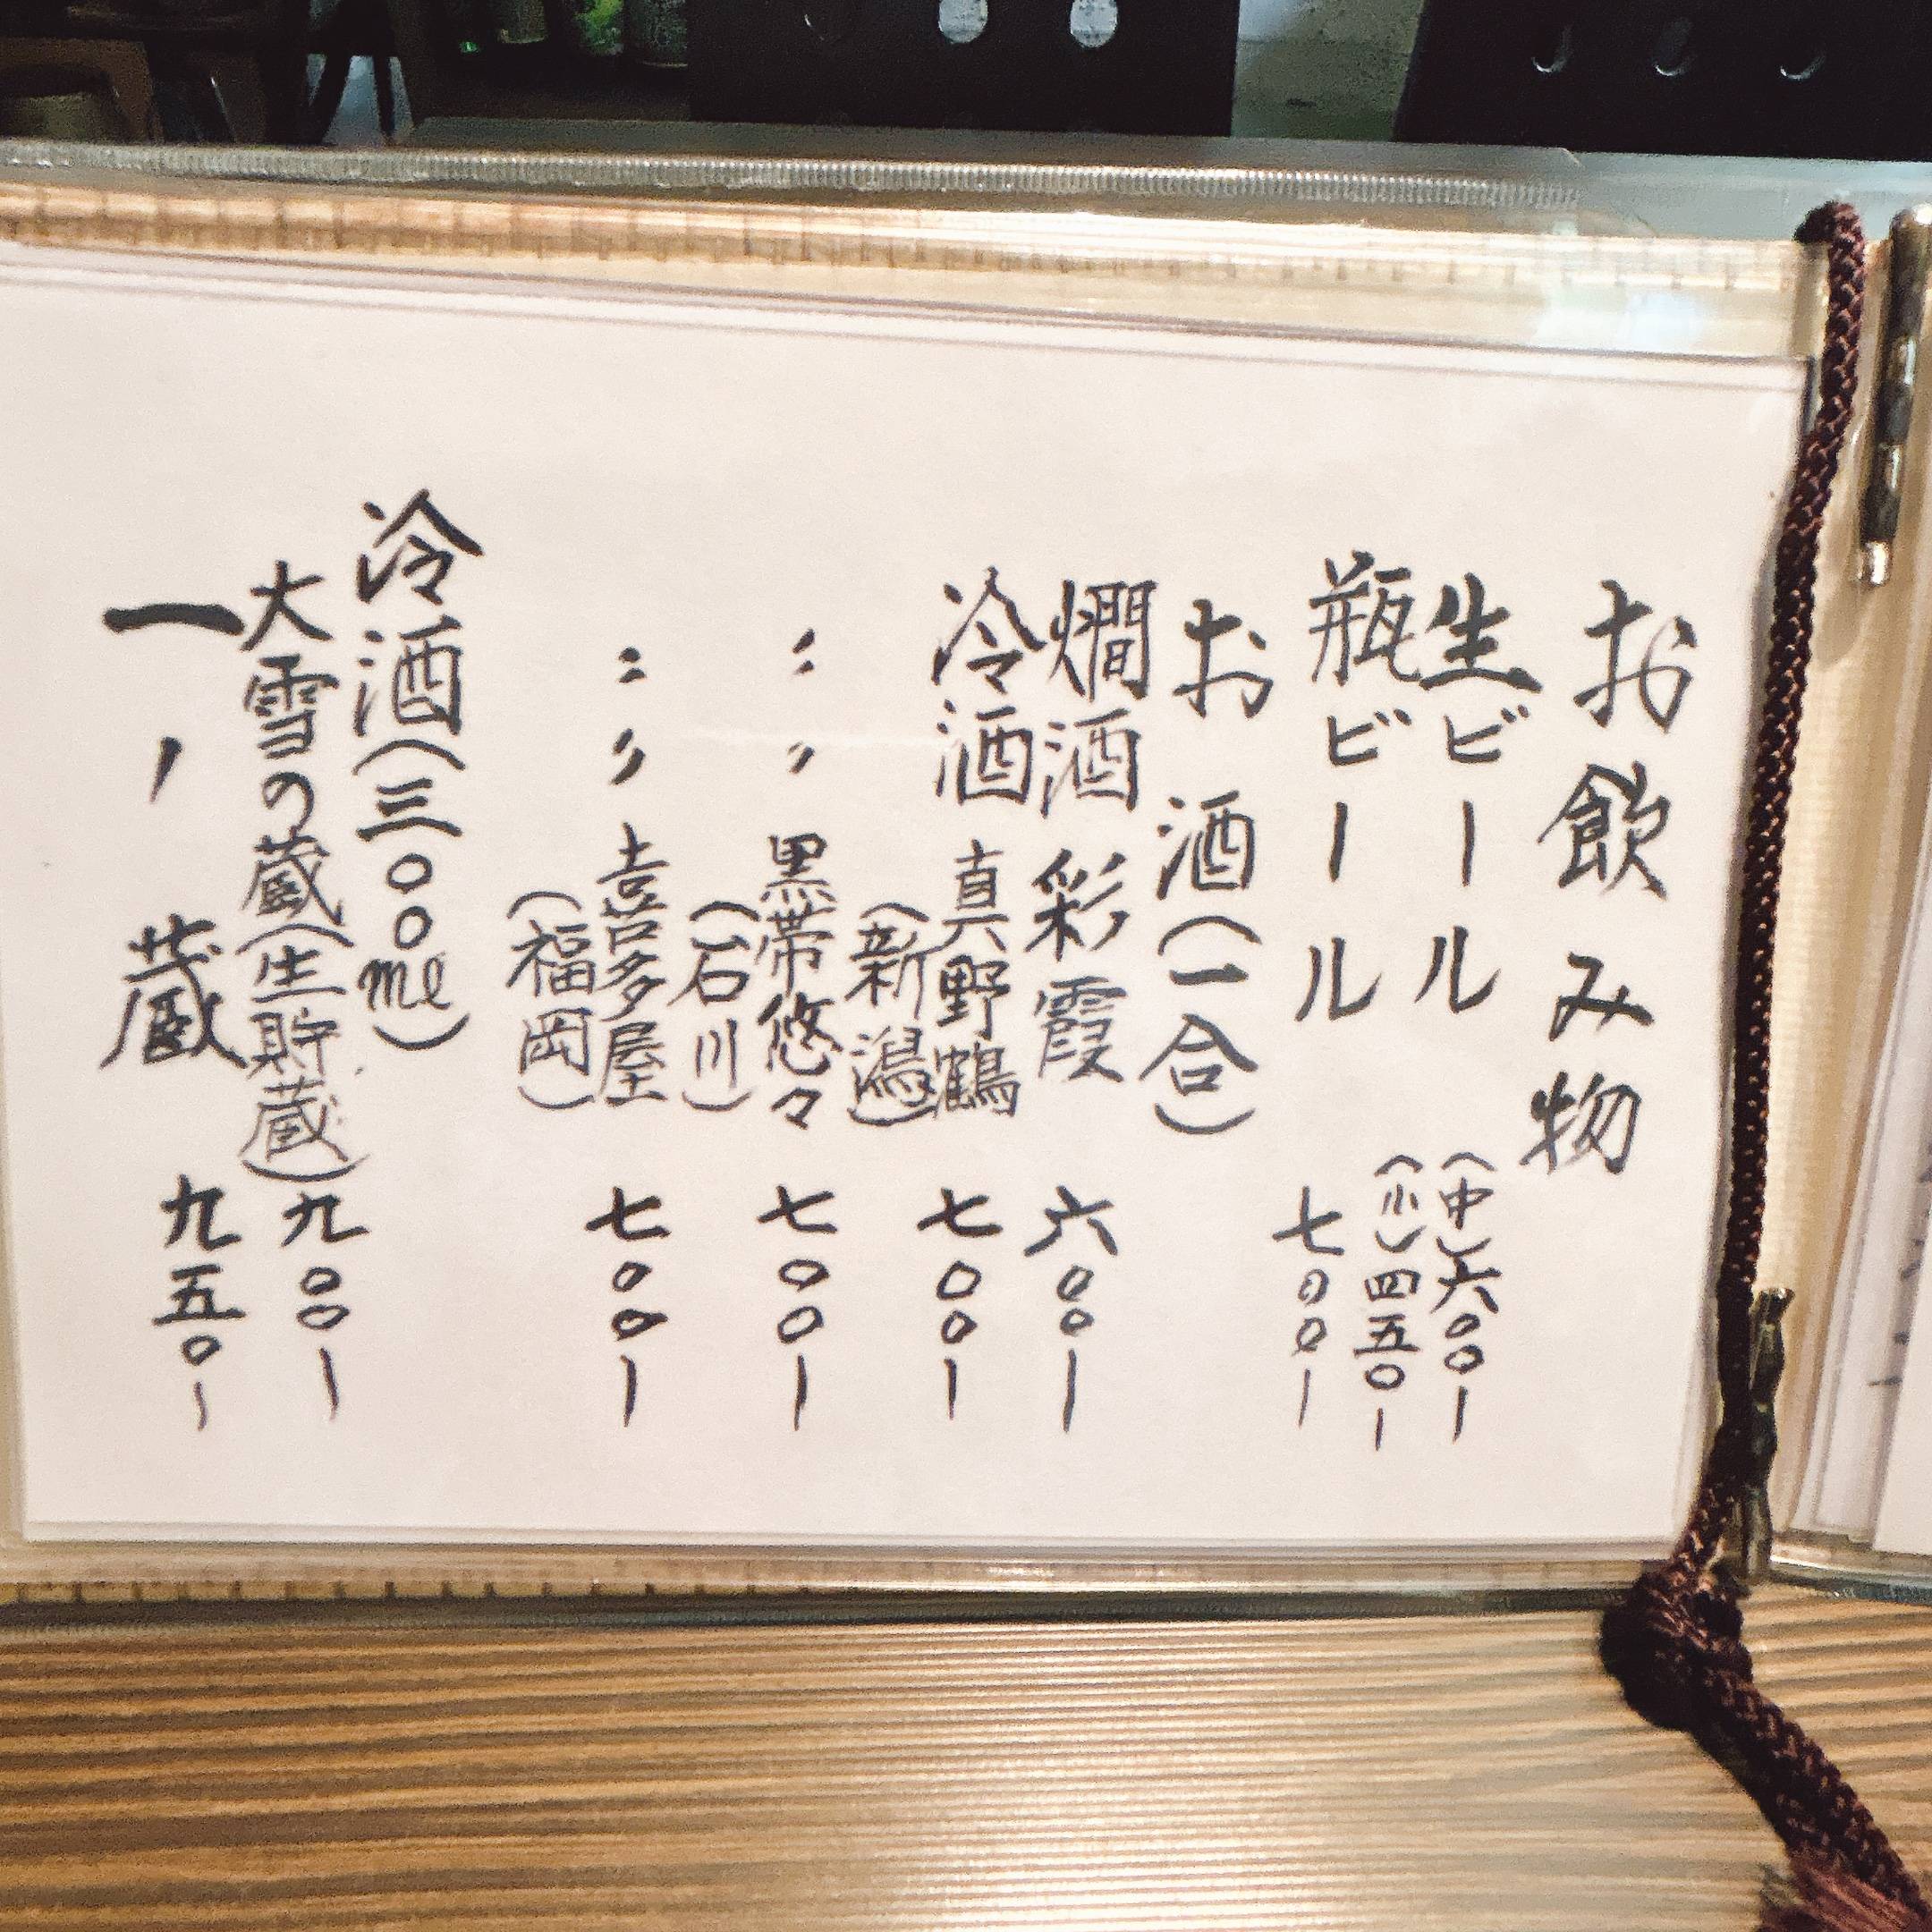 お飲み物
生ビール (中)六〇〇ー
(小)四五〇ー
瓶ビール 七〇〇ー
お酒(一合)
燗酒 彩霞 六〇〇ー
冷酒 真野鶴 七〇〇ー
(新潟)
〃 〃 黒帯悠々 七〇〇ー
(石川)
〃 〃 喜多屋 七〇〇ー
(福岡)
冷酒(三〇〇ml)
大雪の蔵(生貯蔵)九〇〇ー
一ノ蔵 九五〇ー